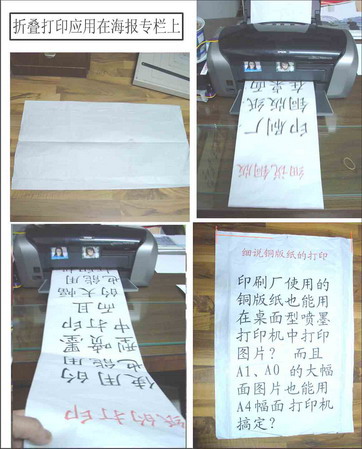 折叠打印应用在海报专栏上
细说铜版
印刷厂
铜版纸
在桌面
纸的打印
使用的
也能用
型喷墨
中打印
而且
的大幅
也能用
打印机
细说铜版纸的打印
印刷厂使用的
铜版纸也能用
在桌面型喷墨
打印机中打印
图片？ 而且
A1、A0 的大幅
面图片也能用
A4幅面打印机
搞定？